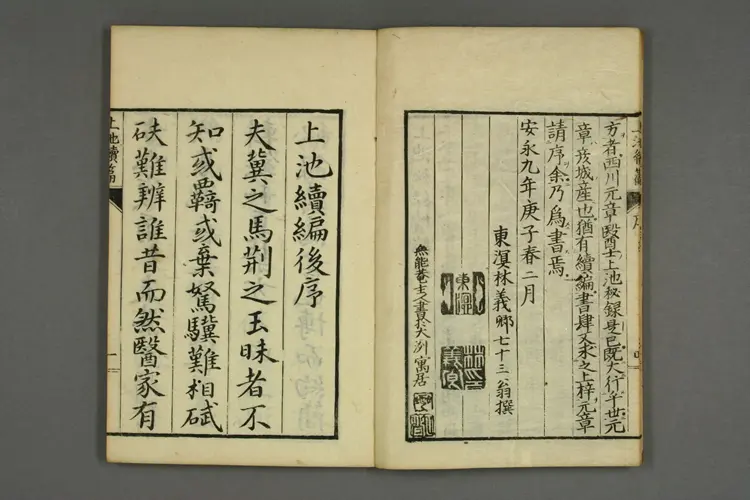 方者西川元章醫士上池秘録是也既大行于世元
章彦城産也猶有續編書肆又求之上梓元章
請序余乃爲書焉
安永九年庚子春二月
東溟林義卿七十三翁撰
東溟
林印義卿
無能菴主人書於大洌寓居
上池續編後序
夫冀之馬荆之玉昧者不
知或羇或棄駑驥難相碔
砆難辨誰昔而然醫家有
上池續篇
一